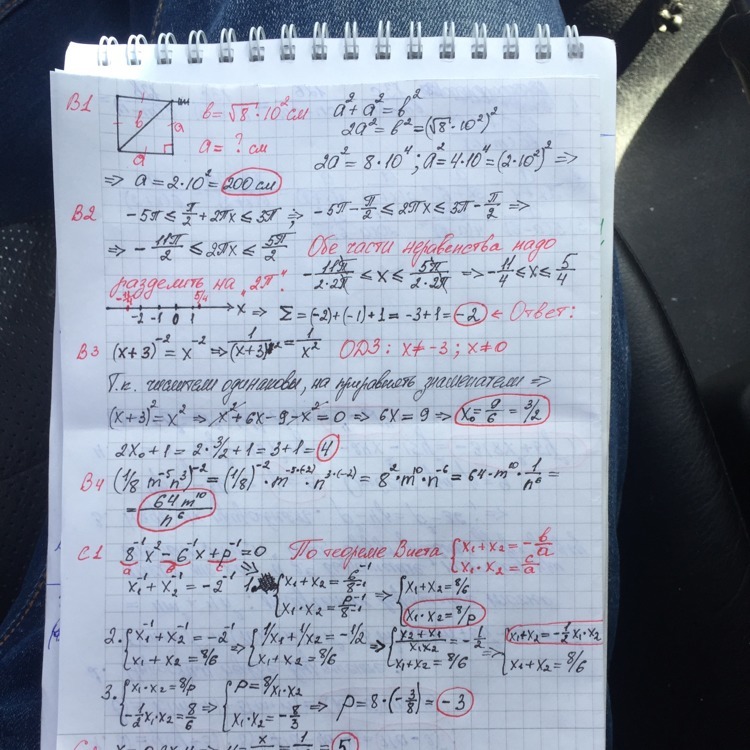 B1 b a a b = √8 · 10² см a² + a² = b²
a = ? см 2a² = b² = (√8 · 10²)²
2a² = 8·10⁴ ; a² = 4·10⁴ = (2·10²)² =>
=> a = 2·10² = 200 см
B2 -5π ≤ π/2 + 2πx ≤ 3π ; => -5π - π/2 ≤ 2πx ≤ 3π - π/2 =>
=> -11π/2 ≤ 2πx ≤ 5π/2 Обе части неравенства надо
разделить на "2π": -11π/2·2π ≤ x ≤ 5π/2·2π => -11/4 ≤ x ≤ 5/4
-2 -1 0 1 5/4 x => Σ = (-2) + (-1) + 1 = -3+1 = -2 ← Ответ:
B3 (x+3)⁻² = x⁻² => 1/(x+3)² = 1/x² ОДЗ: x ≠ -3 ; x ≠ 0
Т.к. числители одинаковы, на приравнять знаменатели =>
(x+3)² = x² => x² + 6x - 9 - x² = 0 => 6x = 9 => x₀ = 9/6 = 3/2
2x₀ + 1 = 2·3/2 + 1 = 3+1 = 4
B4 (1/8 m⁻⁵n³)⁻² = (1/8)⁻² · m⁻⁵·⁽⁻²⁾ · n³·⁽⁻²⁾ = 8²·m¹⁰·n⁻⁶ = 64·m¹⁰·1/n⁶ =
= 64m¹⁰/n⁶
C1 8⁻¹x² - 6⁻¹x + p⁻¹ = 0 По теореме Виета { x₁+x₂ = -b/a
a b c x₁·x₂ = c/a
x₁⁻¹ + x₂⁻¹ = -2⁻¹ 1. { x₁+x₂ = 6⁻¹/8⁻¹ => { x₁+x₂ = 8/6
x₁·x₂ = p⁻¹/8⁻¹ x₁·x₂ = 8/p
2. { x₁⁻¹ + x₂⁻¹ = -2⁻¹ => { 1/x₁ + 1/x₂ = -1/2 => { x₂+x₁/x₁x₂ = -1/2 => { x₁+x₂ = -1/2 x₁·x₂
x₁+x₂ = 8/6 x₁+x₂ = 8/6 x₁+x₂ = 8/6 x₁+x₂ = 8/6
3. { x₁·x₂ = 8/p => { p = 8/x₁x₂ => p = 8·(-3/8) = -3
-1/2 x₁·x₂ = 8/6 x₁·x₂ = -8/3